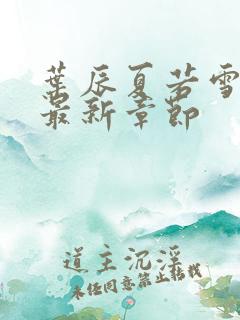 葉辰夏若雪
最新章節
道主沉淫
未经同意禁止转载